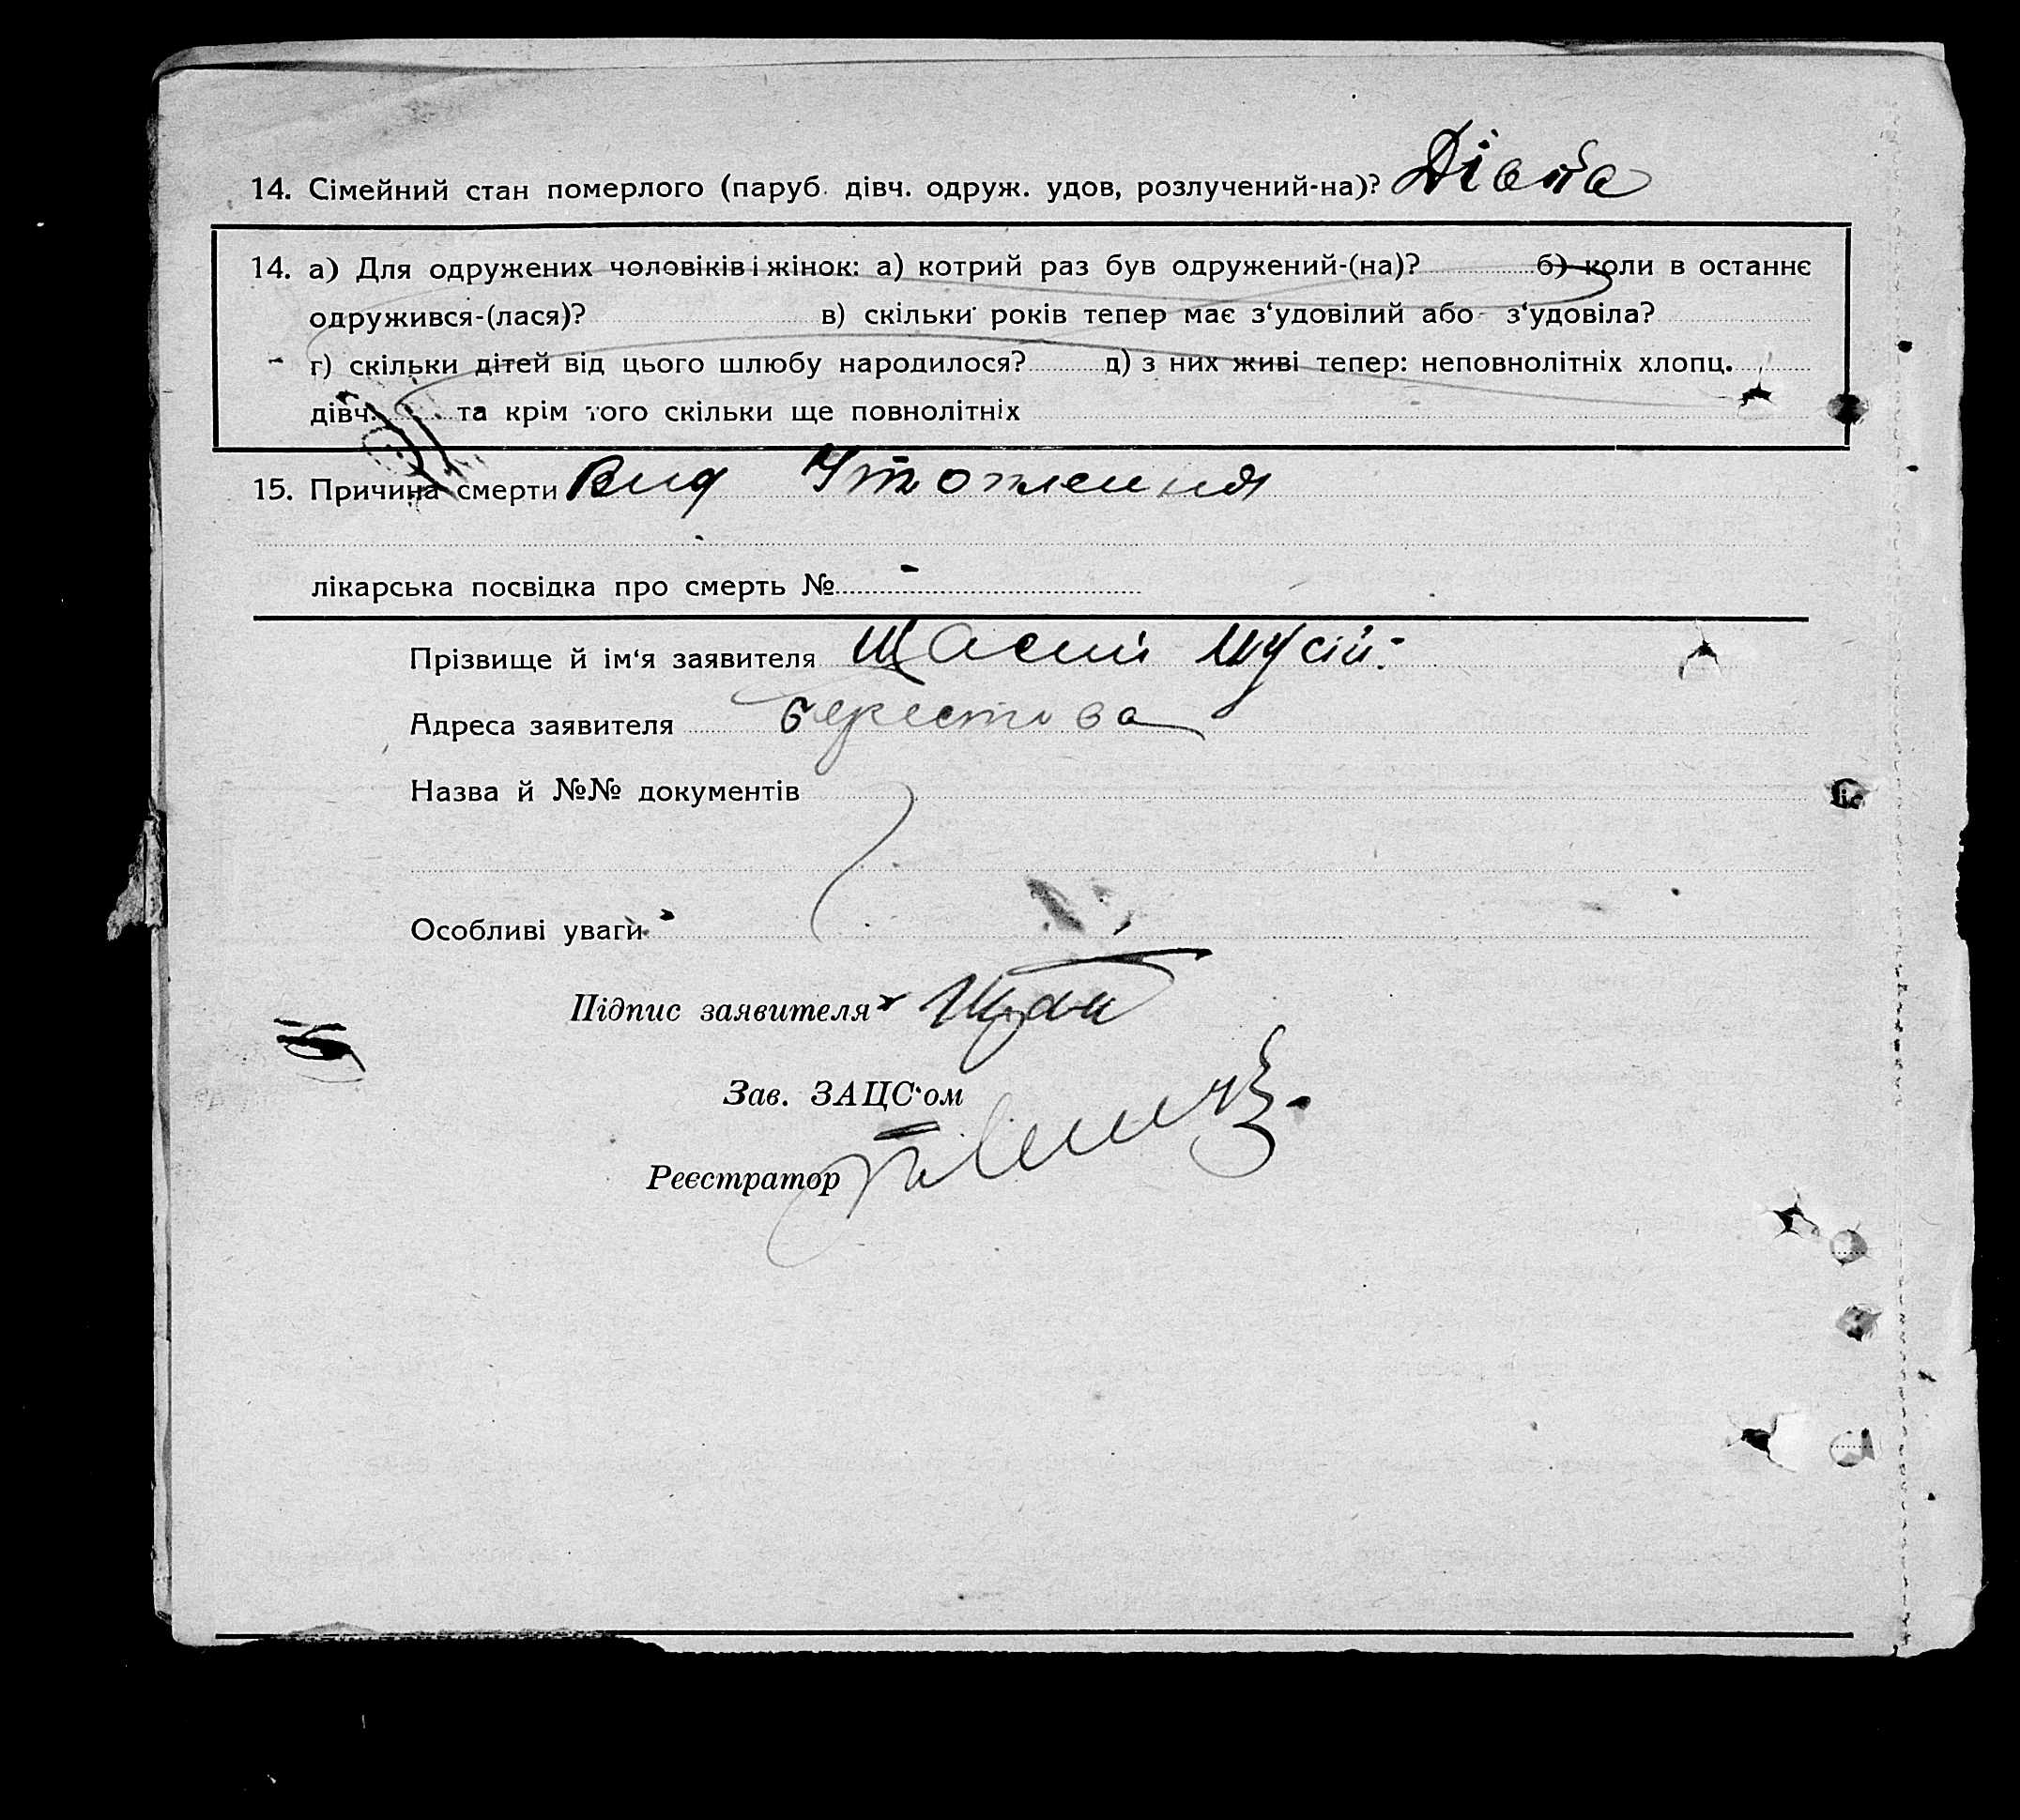 14. Сімейний стан померлого (паруб. дівч. одруж. удов, розлучений-на)?
14. а) Для одружених чоловіків і жінок: а) котрий раз був одружений-(на)? б) коли в останнє
одружився-(лася)? в) скільки років тепер має з‘удовілий або з‘удовіла?
г) скільки дітей від цього шлюбу народилося? д) з них живі тепер: неповнолітніх хлопц.
дівч. та крім того скільки ще повнолітніх
15. Причина смерти Вид
лікарська посвідка про смерть № -
Прізвище й ім‘я заявителя Щасний Мусій
Адреса заявителя берестова
Назва й №№ документів
Особливі уваги
Підпис заявителя
Зав. ЗАЦС‘ом
Реєстратор